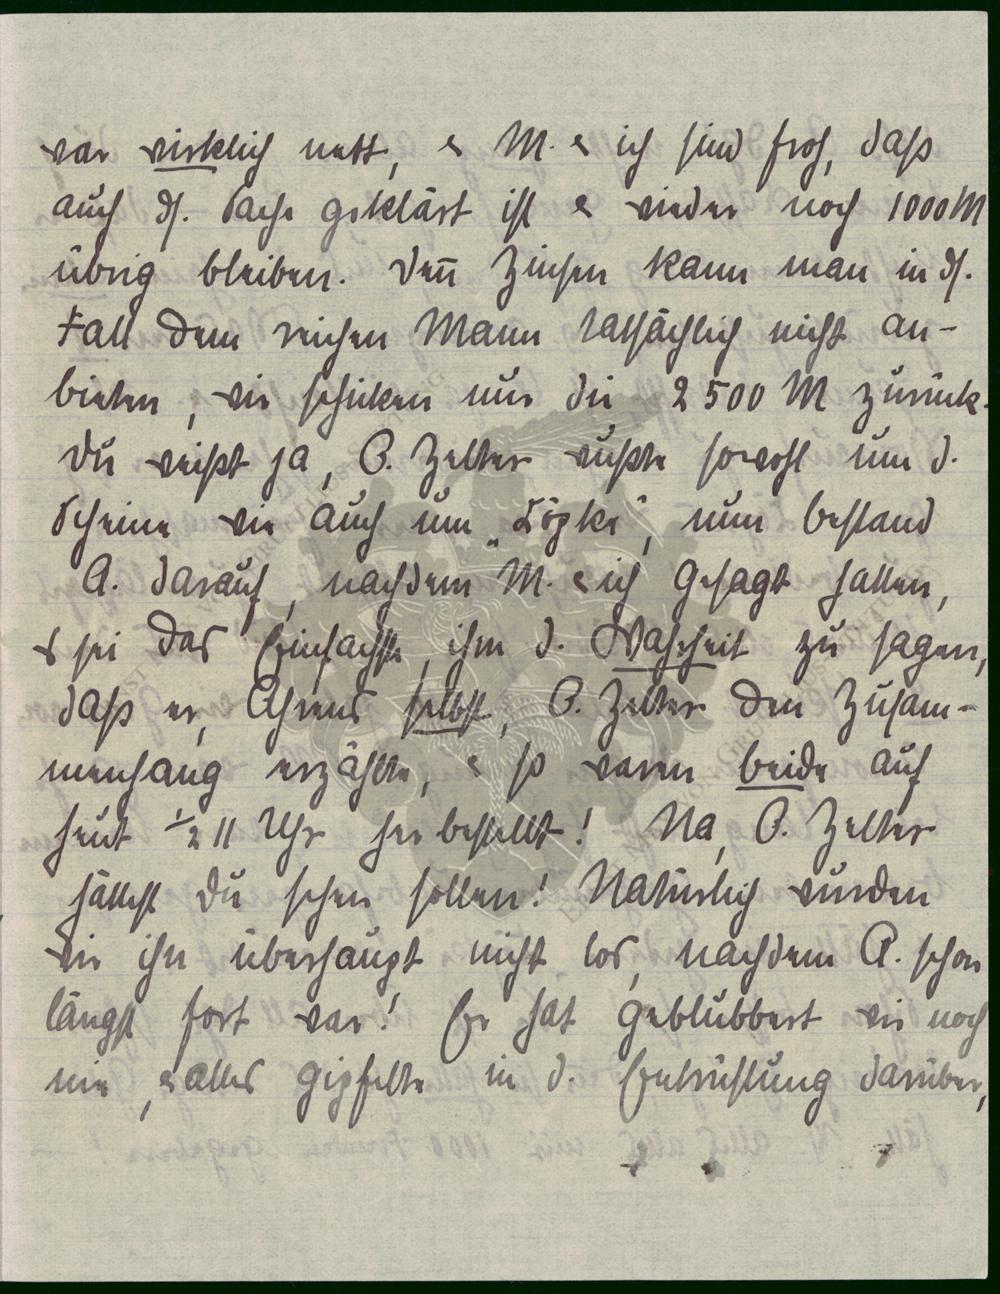 war wirklich nett, & M. & ich sind froh, daß
auch ds. Sache geklärt ist & wieder noch 1000 M
übrig bleiben. Denn Zinsen kann man in ds.
Fall dem reichen Mann tatsächlich nicht an-
bieten, wir schicken nur die 2500 M zurück.
Du weißt ja, O. Zelter wußte sowohl um d.
Scheine wie auch um „Döpke“, nun bestand
A. darauf, nachdem M. & ich gesagt hatten,
es sei das Einfachste, ihm d. Wahrheit zu sagen,
daß er, Ahrens selbst, O. Zelter den Zusam-
menhang erzählte, & so waren beide auf
heut ½ 11 Uhr herbestellt! Na, O. Zelter
hättest Du sehen sollen! Natürlich wurden
wir ihn überhaupt nicht los, nachdem A. schon
längst fort war! Er hat geblubbert wie noch
nie, & alles gipfelte in d. Entrüstung darüber,